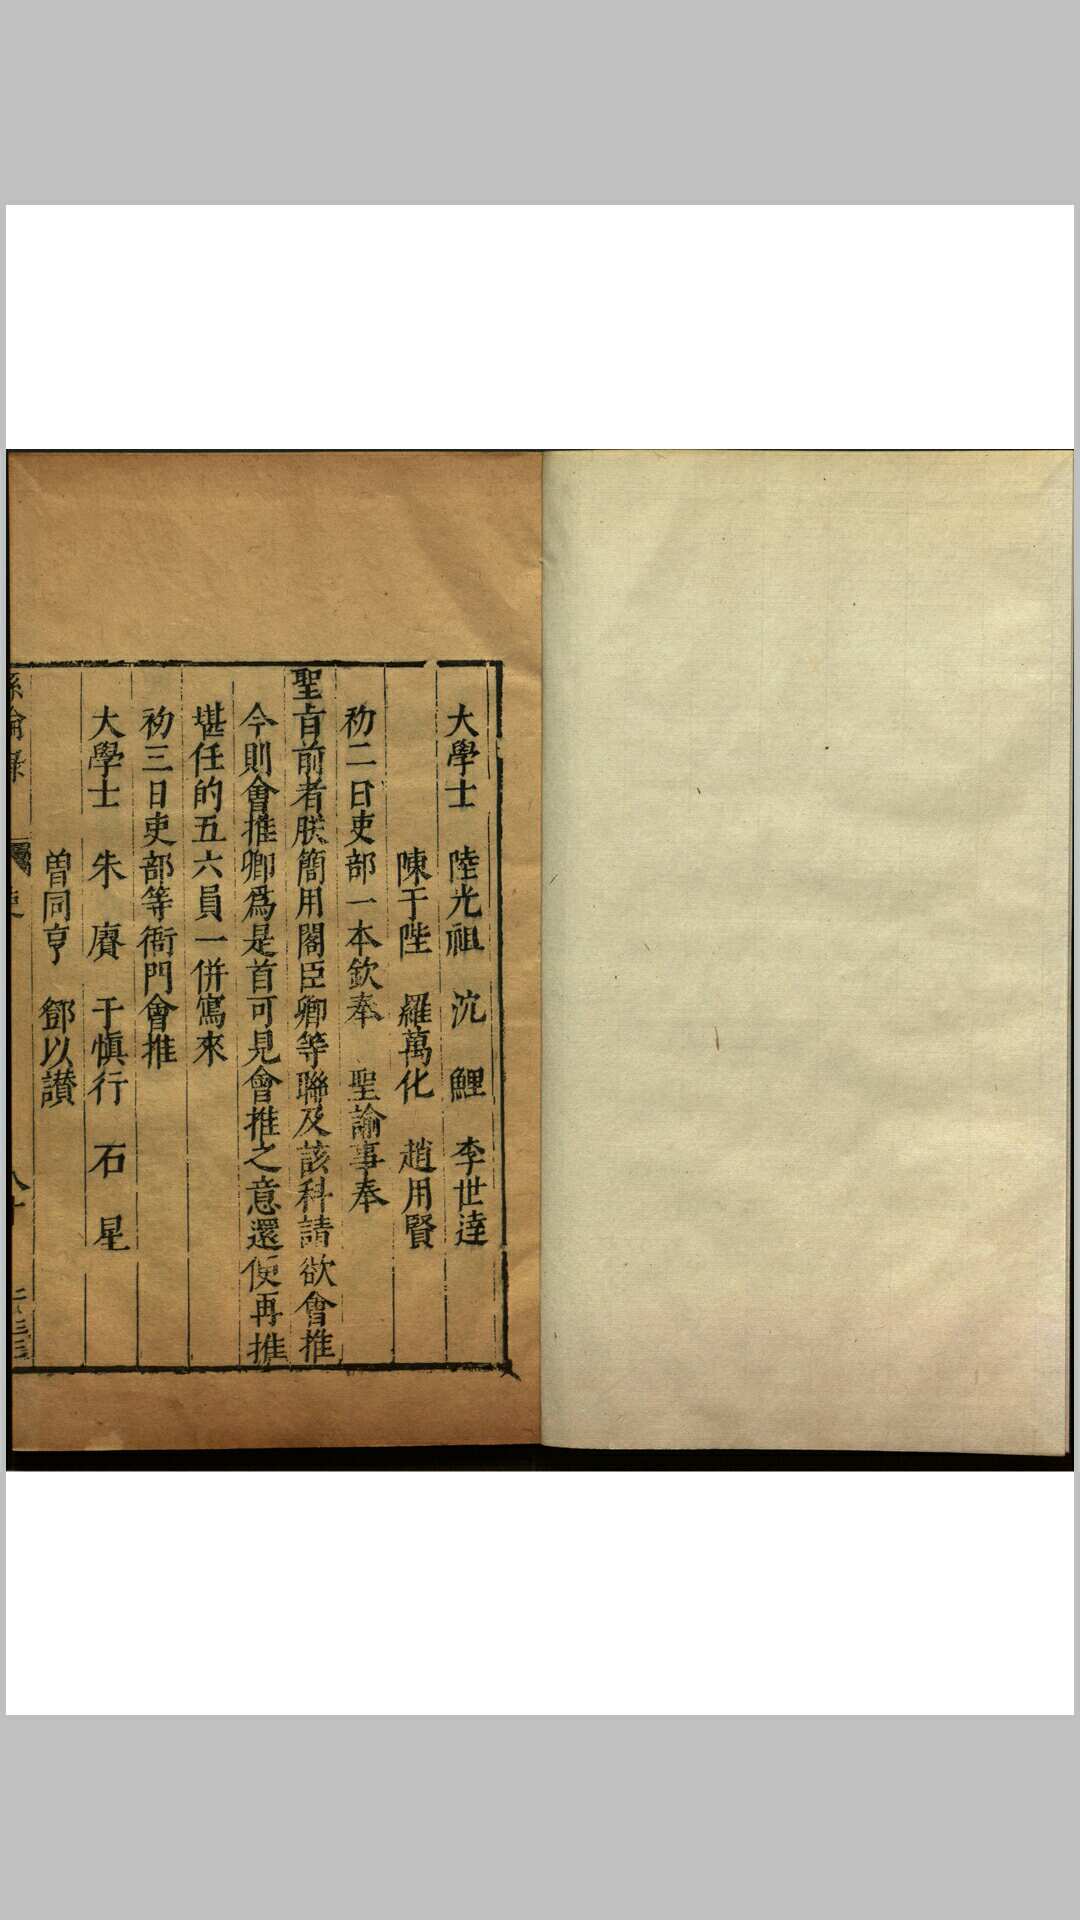 大學士 陸光祖 沈鯉 李世達
陳于陛 羅萬化 趙用賢
初二日吏部一本欽奉 聖諭事奉
聖旨前者朕簡用閣臣卿等聯及該科請欲會推
今則會推卿爲是首可見會推之意還便再推
堪任的五六員一併寫來
初三日吏部等衙門會推
大學士 朱賡 于慎行 石星
曾同亨 鄧以讃